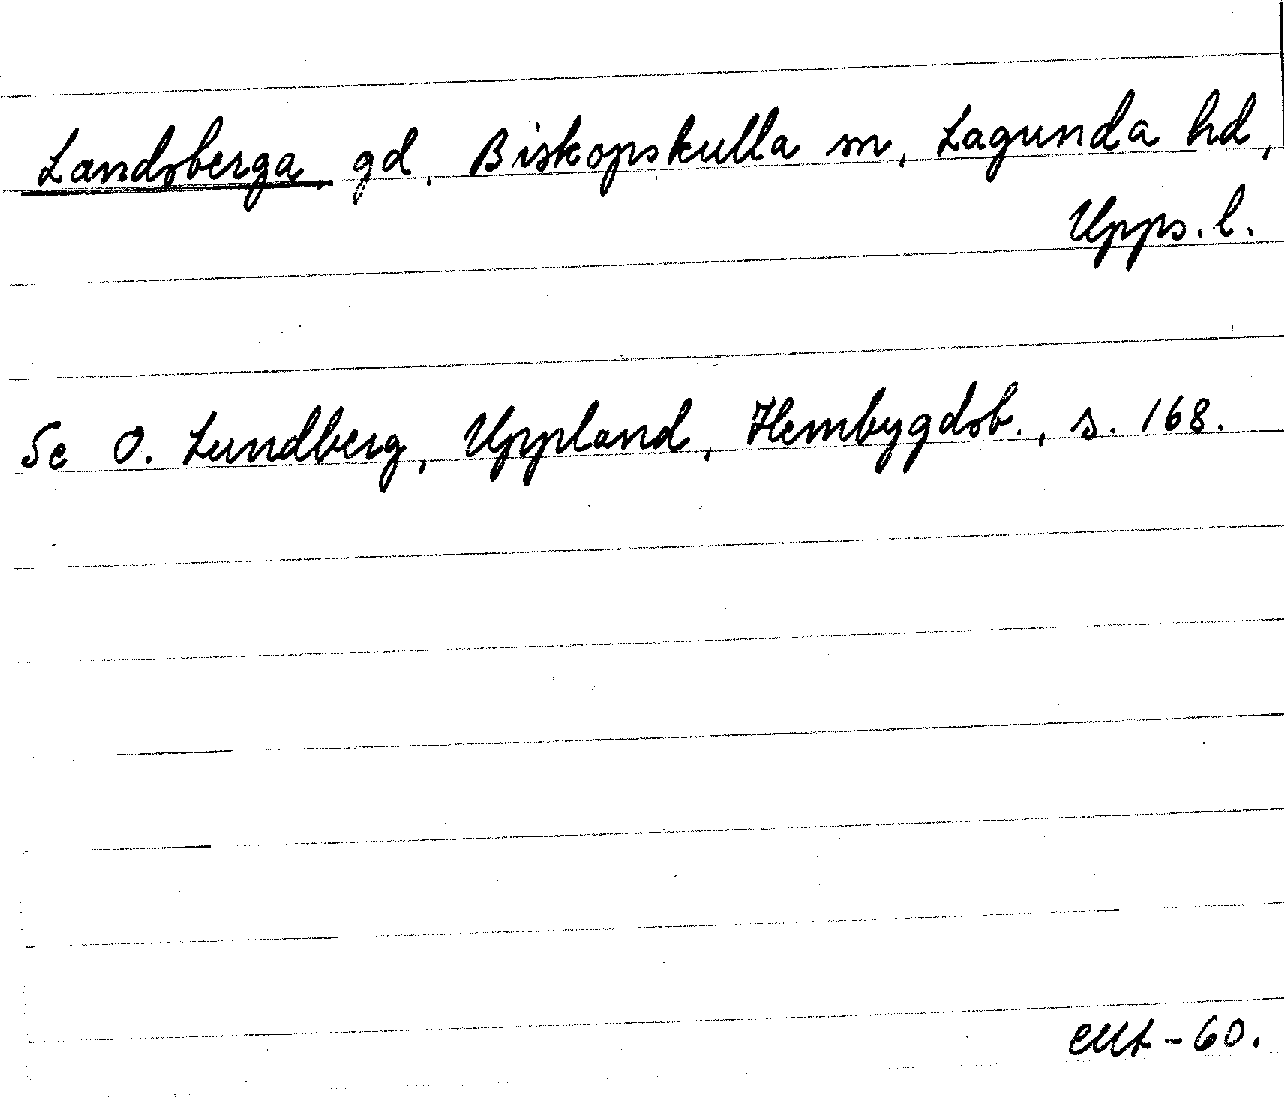 Landsberga, gd, Biskopskulla sn, Lagunda hd,
Upps. l.
Se O. Lundberg, Uppland, Hembygdsb., s. 168.
-60.